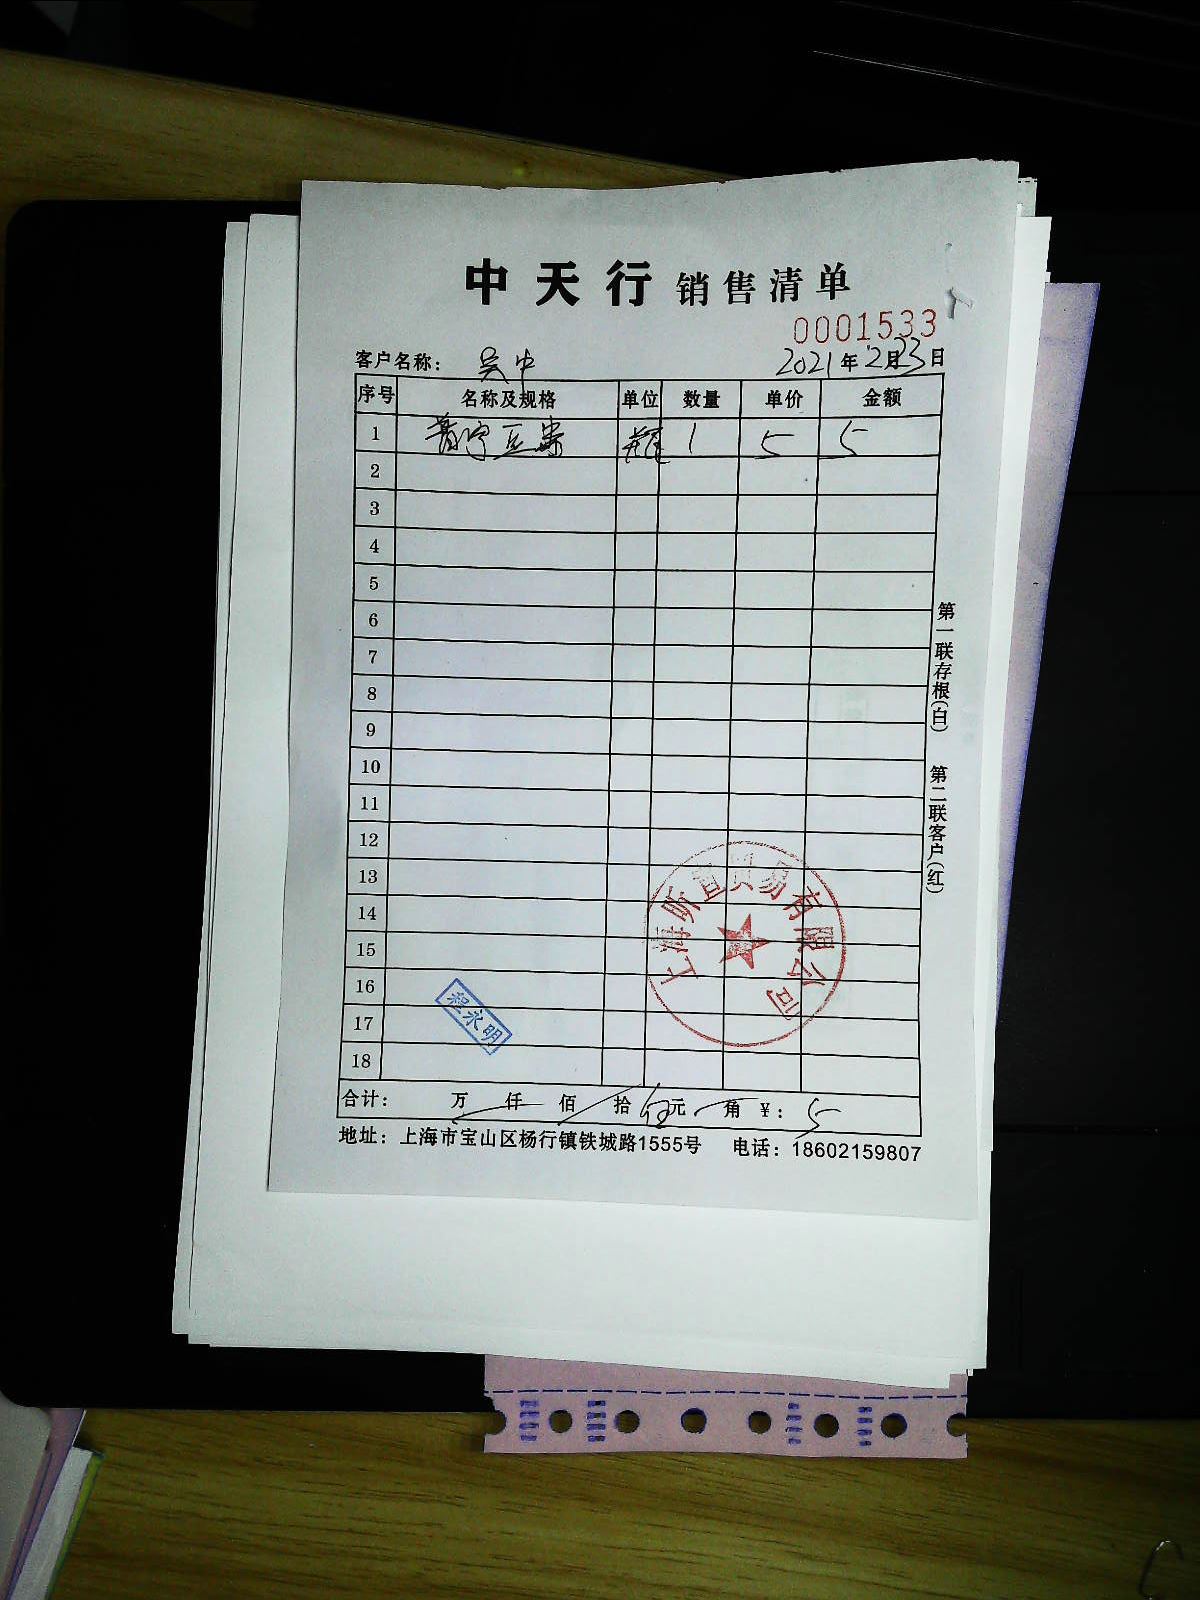 中天行 销售清单
0001533
客户名称： 吴中 2021年12月23日
序号 名称及规格 单位 数量 单价 金额
1 1 5 5
2
3
4
5
6
7
8
9
10
11
12
13
14
15
16
17
18
第一联存根(白) 第二联客户(红)
上海昕 贸易有限公司
程永明
合计： 万 仟 佰 拾 伍元 角 ¥： 5
地址：上海市宝山区杨行镇铁城路1555号 电话：18602159807